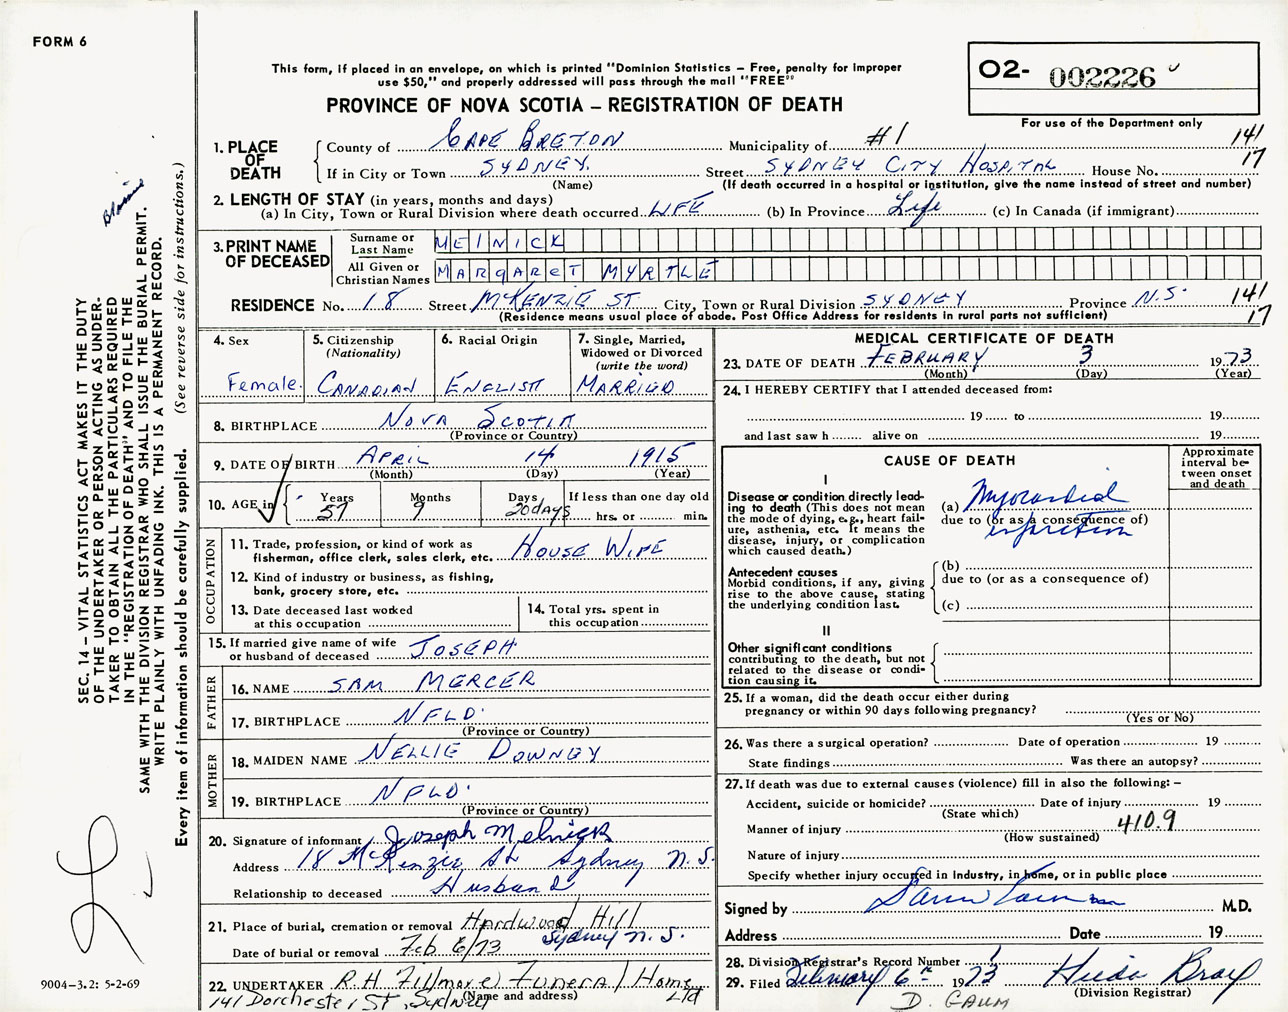 FORM 6
This form, if placed in an envelope, on which is printed "Dominion Statistics – Free, penalty for improper
use $50," and properly addressed will pass through the mail "FREE"
PROVINCE OF NOVA SCOTIA – REGISTRATION OF DEATH
O2- 002226
For use of the Department only
1. PLACE OF DEATH
County of CAPE BRETON Municipality of #1 141
If in City or Town SYDNEY. Street SYDNEY CITY HOSPITAL House No. 17
(Name) (If death occurred in a hospital or institution, give the name instead of street and number)
2. LENGTH OF STAY (in years, months and days)
(a) In City, Town or Rural Division where death occurred LIFE (b) In Province Life (c) In Canada (if immigrant)
3. PRINT NAME OF DECEASED
Surname or Last Name MElNICK
All Given or Christian Names MARGARET MYRTLE
RESIDENCE No. 18 Street McKENZIE ST. City, Town or Rural Division SYDNEY Province N.S. 141
(Residence means usual place of abode. Post Office Address for residents in rural parts not sufficient) 17
4. Sex
Female.
5. Citizenship
(Nationality)
CANADIAN
6. Racial Origin
ENGLISH
7. Single, Married,
Widowed or Divorced
(write the word)
MARRIED
8. BIRTHPLACE NOVA SCOTIA
(Province or Country)
9. DATE OF BIRTH APRIL 14 1915
(Month) (Day) (Year)
10. AGE in Years Months Days If less than one day old
57 9 20 days hrs. or min.
OCCUPATION
11. Trade, profession, or kind of work as
fisherman, office clerk, sales clerk, etc. HOUSE WIFE
12. Kind of industry or business, as fishing,
bank, grocery store, etc.
13. Date deceased last worked
at this occupation
14. Total yrs. spent in
this occupation
15. If married give name of wife
or husband of deceased JOSEPH
FATHER
16. NAME SAM MERCER
17. BIRTHPLACE NFLD.
(Province or Country)
MOTHER
18. MAIDEN NAME NELLIE DOWNEY
19. BIRTHPLACE NFLD.
(Province or Country)
20. Signature of informant Joseph Melnick
Address 18 McKenzie St Sydney N.S.
Relationship to deceased Husband
21. Place of burial, cremation or removal Hardwood Hill
Sydney N.S.
Date of burial or removal Feb 6/73
22. UNDERTAKER R.H. Fillmore Funeral Home
Ltd
(Name and address)
141 Dorchester St, Sydney
MEDICAL CERTIFICATE OF DEATH
23. DATE OF DEATH FEBRUARY 3 1973
(Month) (Day) (Year)
24. I HEREBY CERTIFY that I attended deceased from:
19 to 19
and last saw h alive on 19
CAUSE OF DEATH
Approximate
interval be-
tween onset
and death
I
Disease or condition directly lead-
ing to death (This does not mean
the mode of dying, e.g., heart fail-
ure, asthenia, etc. It means the
disease, injury, or complication
which caused death.)
(a) Myocardial
due to (or as a consequence of)
infarction
Antecedent causes
Morbid conditions, if any, giving
rise to the above cause, stating
the underlying condition last.
(b)
due to (or as a consequence of)
(c)
II
Other significant conditions
contributing to the death, but not
related to the disease or condi-
tion causing it.
25. If a woman, did the death occur either during
pregnancy or within 90 days following pregnancy?
(Yes or No)
26. Was there a surgical operation? Date of operation 19
State findings Was there an autopsy?
27. If death was due to external causes (violence) fill in also the following: –
Accident, suicide or homicide? Date of injury 19
(State which)
Manner of injury 410.9
(How sustained)
Nature of injury
Specify whether injury occurred in industry, in home, or in public place
Signed by M.D.
Address Date 19
28. Division Registrar's Record Number 1
29. Filed February 6th 1973 Hilda Bray
(Division Registrar)
D. GAUM
SEC. 14 – VITAL STATISTICS ACT MAKES IT THE DUTY
OF THE UNDERTAKER OR PERSON ACTING AS UNDER-
TAKER TO OBTAIN ALL THE PARTICULARS REQUIRED
IN THE "REGISTRATION OF DEATH" AND TO FILE THE
SAME WITH THE DIVISION REGISTRAR WHO SHALL ISSUE THE BURIAL PERMIT.
WRITE PLAINLY WITH UNFADING INK. THIS IS A PERMANENT RECORD.
Every item of information should be carefully supplied. (See reverse side for instructions.)
9004-3.2: 5-2-69